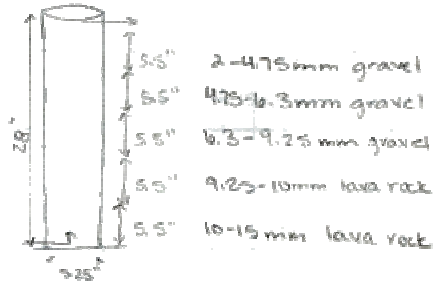 5.5" 2-4.75mm gravel
5.5" 4.75-6.3mm gravel
5.5" 6.3-9.25mm gravel
28"
5.5" 9.25-10mm lava rock
5.5" 10-15mm lava rock
3.25"